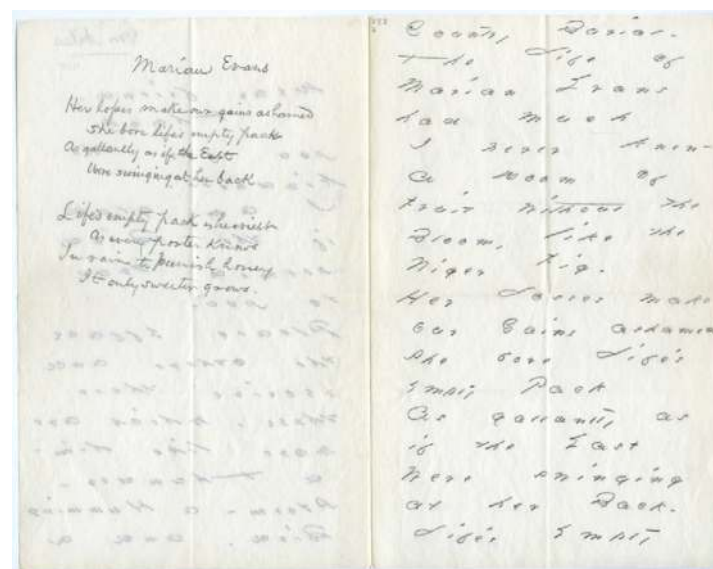 Marian Evans
Her losses make our gains ashamed
She bore life's empty pack
As gallantly as if the East
Were swinging at her back
Life's empty pack is heaviest
As every porter knows
In vain to punish honey
It only sweeter grows.
The Life of
Marian Evans
had much
I never knew -
a Doom of
Fruit without the
Bloom, like the
Niger Fig.
Her Losses make
our Gains ashamed
She bore Life's
Empty Pack
As gallantly as
if the East
Were swinging
at her Back.
Life's Empty